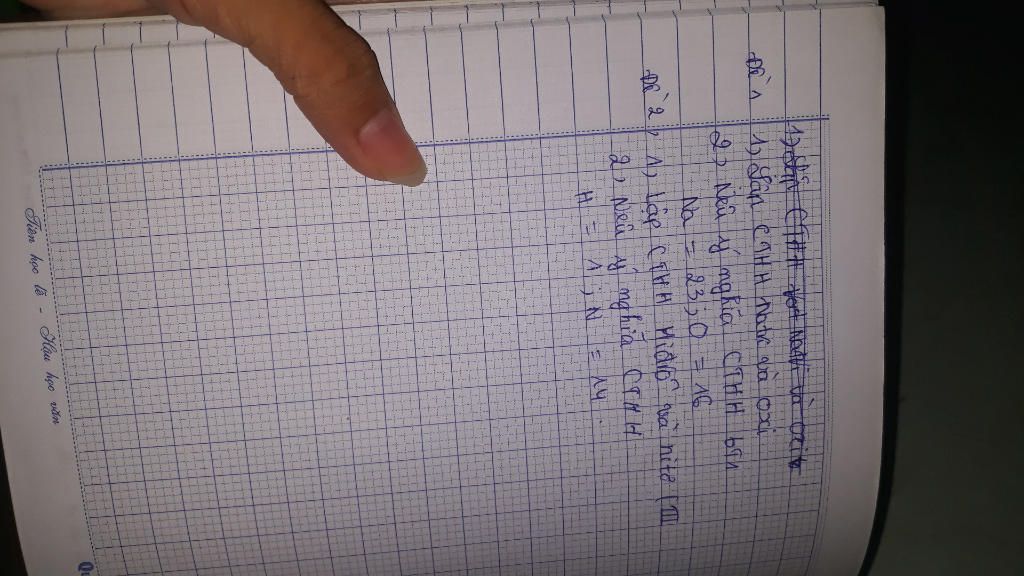 1) Lập CTHH và oxi
Đề 1 1) Lập CTHH Natri và oxi
2, Nêu ý nghĩa CTHH bên
Na = 23; O = 16
Đề 2, 1, Lập CTHH Hiđrô và nitơ (III
2, Nêu ý nghĩa CTHH
H = 1; N = 14
Tiên học lễ - Hậu học văn